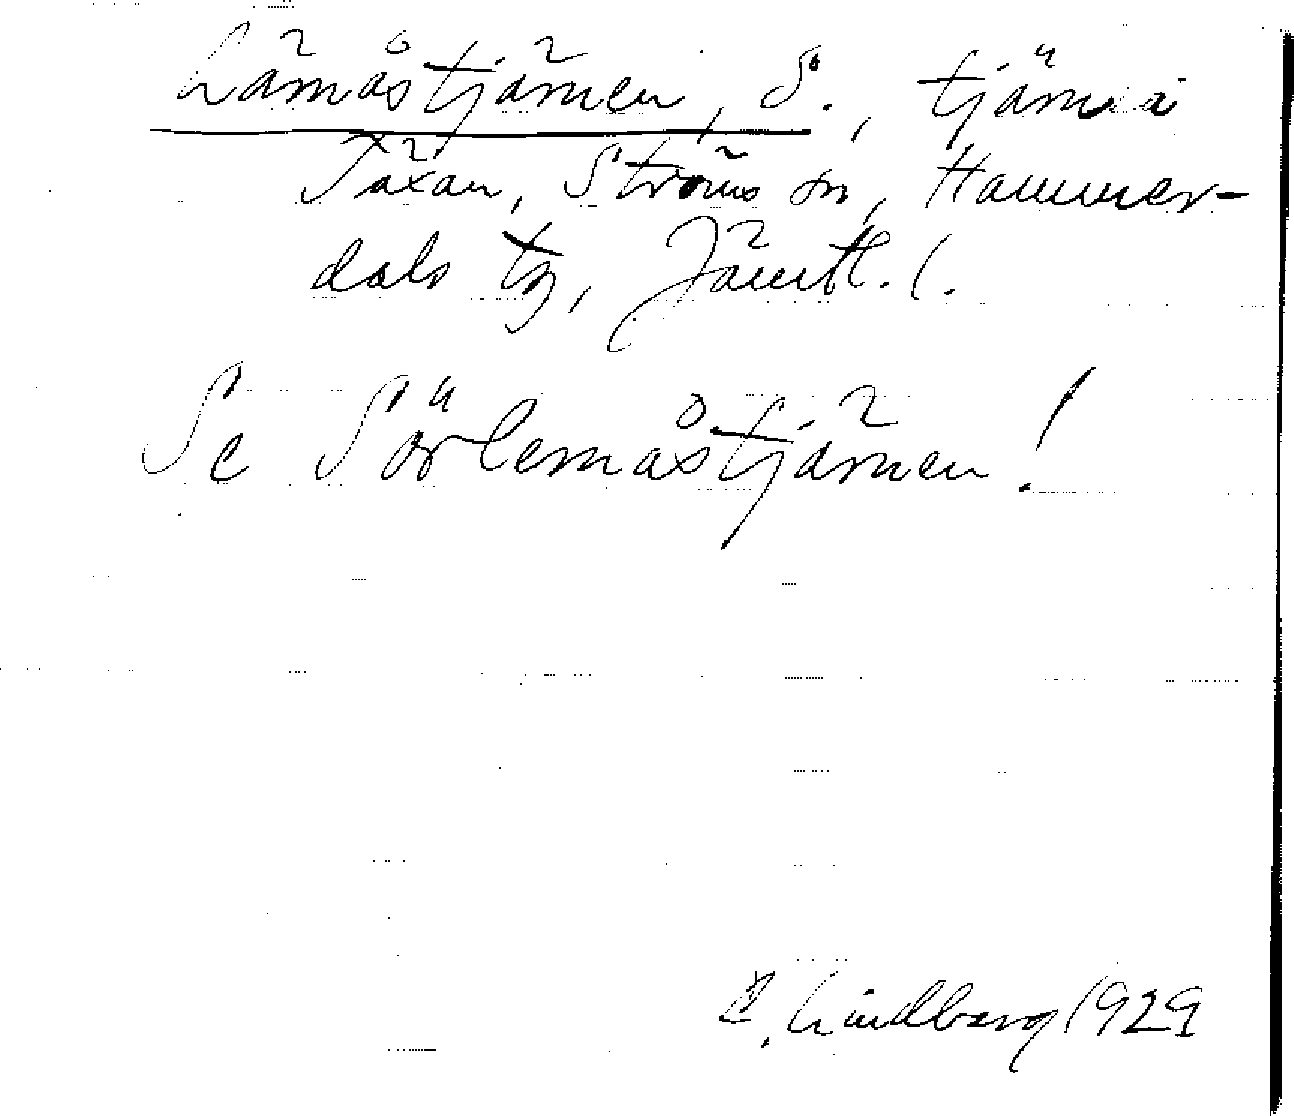 Lämåstjärnen, S., tjärn i
Täxan, Ströms sn, Hammer-
dals tg, Jämtl. l.
Se Sörlemåstjärnen!
C. Lindberg 1929